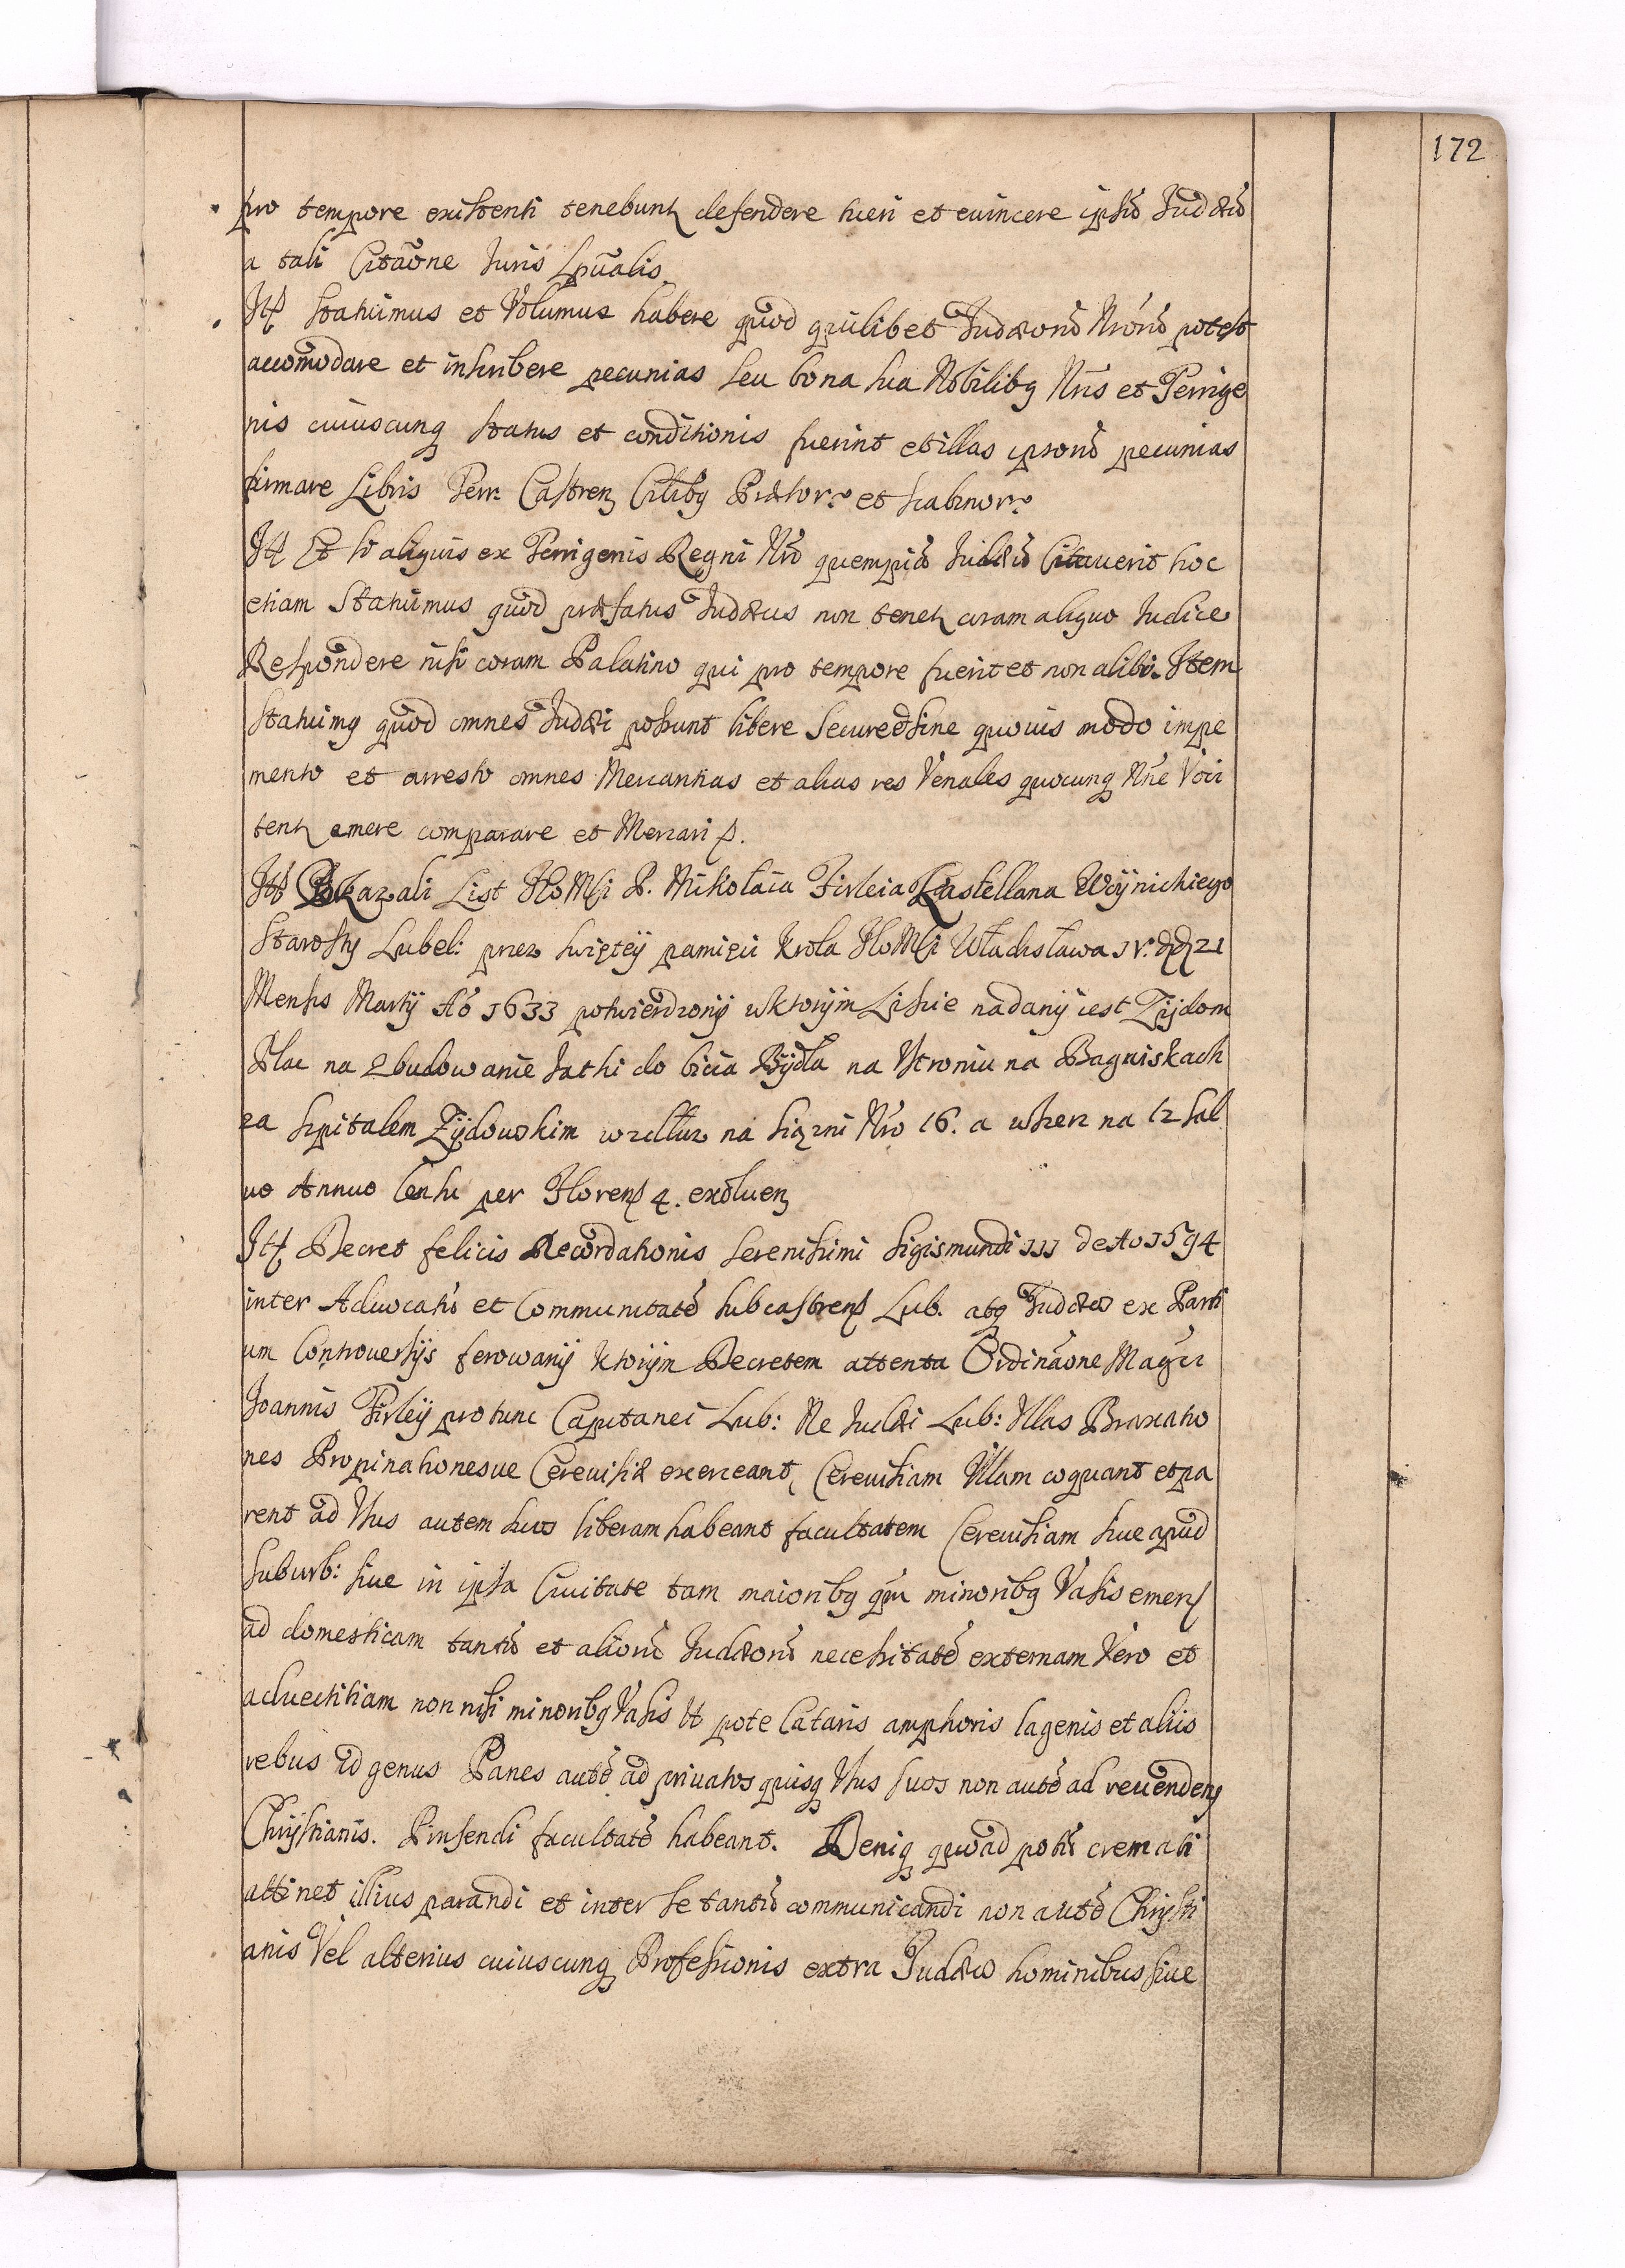 172
pro tempore existenti tenebunt defendere tueri et euincere ipsũ Iudæũ
a tali Citaõne Iuris Spũalis
Itt Statuimus et Volumus habere quod quilibet Iudæorũ Nrorũ potest
accomodare et inscribere pecunias seu bona sua Nobilibq Nris et Terrige
nis cuiuscunq status et conditionis fuerint et illas ipsorũ pecunias
firmare Libris Terr. Castren Ciũibq Prætor: et scabinor:
Itt Et si aliquis ex Terrigenis Regni Nrõ quempiã Iudæũ Citauerit hoc
etiam Statuimus quod præfatus Iudæus non tenet coram aliquo Iudice
Respondere nisi coram Palatino qui pro tempore fuerit et non alibi. Item
Statuimq quod omnes Iudæi possunt libere secure et sine quouis modo impe
mento et aresto omnes Mercantias et alias res Venales quocunq Nñe Voci
tent emere comparare et Mercari p.
Itt Pokazali List JeoMći P. Mikołaia Firleia Kastellana Woynickiego
Starosty Lubel: przez swiętey pamięci Krola JeoMći Władisława IV: dd 21
Mensis Martij Aõ 1633 potwierdzony w ktorym Liscie nadany iest Zydom
Plac na Zbudowanie Iatki do bicia Bydła na Ustroniu na Bagniskach
za szpitalem Zydowskim wzdłuz na siązni Nro 16. a wszerz na 12 sal
uo Annuo Censu per Floren 4. exoluen
Itt Decret felicis Recordationis Serenissimi Sigismundi III de Ao 1594
inter Aduocatũ et Communitatẽ subcastren Lub. atq Iudæos ex Parti
um Controuersijs ferowany ktorym Decretem attenta Ordinaõne Magci
Ioannis Firley pro tunc Capitanei Lub: Ne Iudæi Lub: Ullas Braxatio
nes Propinationesue Ceruisiæ exerceant, Cereuisiam Ullam coquant et pa
rent ad Usus autem suos liberam habeant facultatem Cereuisiam siue apud
Suburb: siue in ipsa Ciuitate tam maioribq qm minoribq Vasis emen
ad domesticam tantũ et aliorũ Iudæorũ necessitatẽ externam Vero et
aduectitiam non nisi minoribq Vasis Ut pote Cataris amphoris lagenis et aliis
rebus id genus Panes autẽ ad priuatos quisq Usus suos non autẽ ad reuenden
Chrystianis. Pinsendi facultatẽ habeant. Deniq quoad potũ cremati
attinet illius parandi et inter se tantũ communicandi non autẽ Chrysti
anis Vel alterius cuiuscunq Professionis extra Iudæos hominibus siue